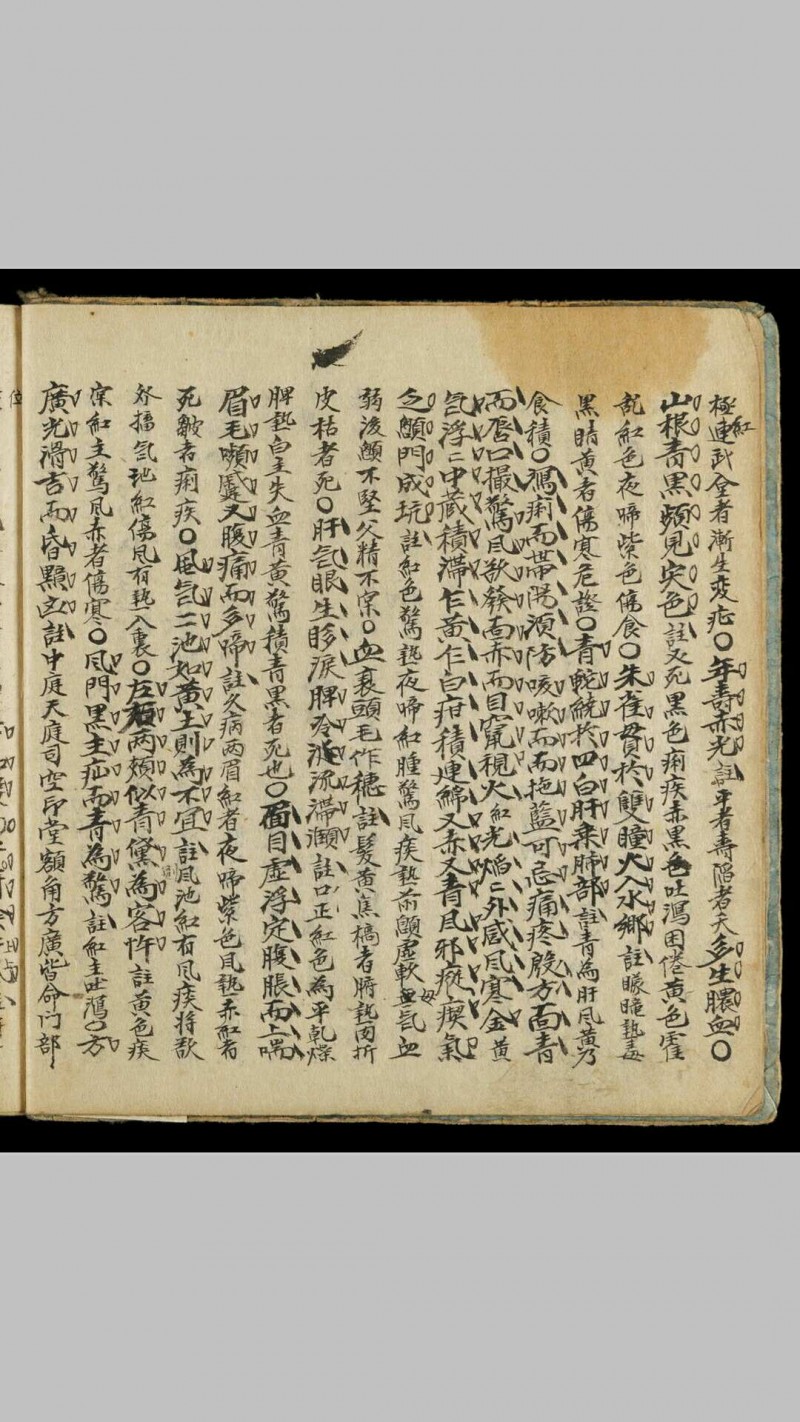 極連武全者漸生疫疕〇年壽赤光註平者壽陷者夭多生膿血〇
紅
山根青黑頻見灾色註又死黑色痢疾赤黑色吐瀉困倦黃色霍
亂紅色夜啼紫色傷食〇朱雀貫於雙瞳火入水鄉註眼瞳熱毒
黑睛黃者傷寒危證〇青蛇繞於四白肝乘肺部註青為肝風黃乃
食積〇瀉痢而帶陽須防咳嗽而面拖藍可忌痛疼殷方面青
而唇口撮驚風欲發面赤而目竄視火紅光焰二外感風寒金黃
気浮二中藏積滯乍黃乍白疳積連綿又赤又青風邪瘛瘲氣
乏顖門成坑註紅色驚熱夜啼紅腫驚風疾熱前顖虛軟母血気血
弱後顖不堅父精不宗〇血衰頭毛作穗註髮黃焦槁者腑熱肉折
皮枯者死〇肝気眼生眵淚脾冷涎流滯瀕註口正紅色為平乾燥
脾熱白主失血青黃驚積青黑者死也〇面目虛浮定腹脹而上喘
眉毛嚬蹙又腹痛而多啼註久病兩眉紅者夜啼紫色風熱赤紅者
死皺者痢疾〇風気二池如黃土則為不宜註風池紅有風疾將欬
發搐気池紅傷風有熱入裏〇左右兩頰似青黛為客忤註黃色疾
宗紅主驚風赤者傷寒〇風門黑主疝而青為驚註紅主吐瀉〇方
廣光滑吉而昏黯凶註中庭天庭司空印堂額角方廣皆命门部